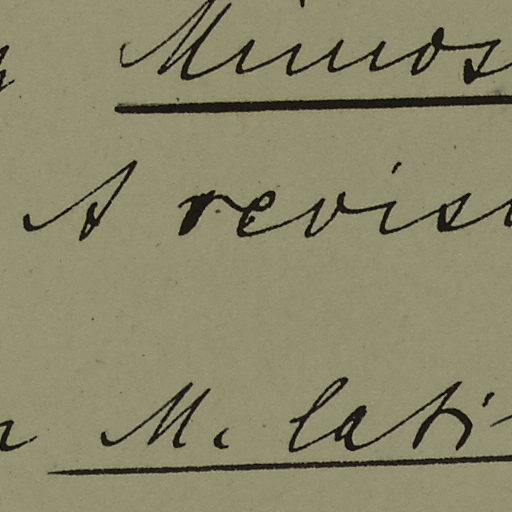 Mimos
A revisi
M. lati